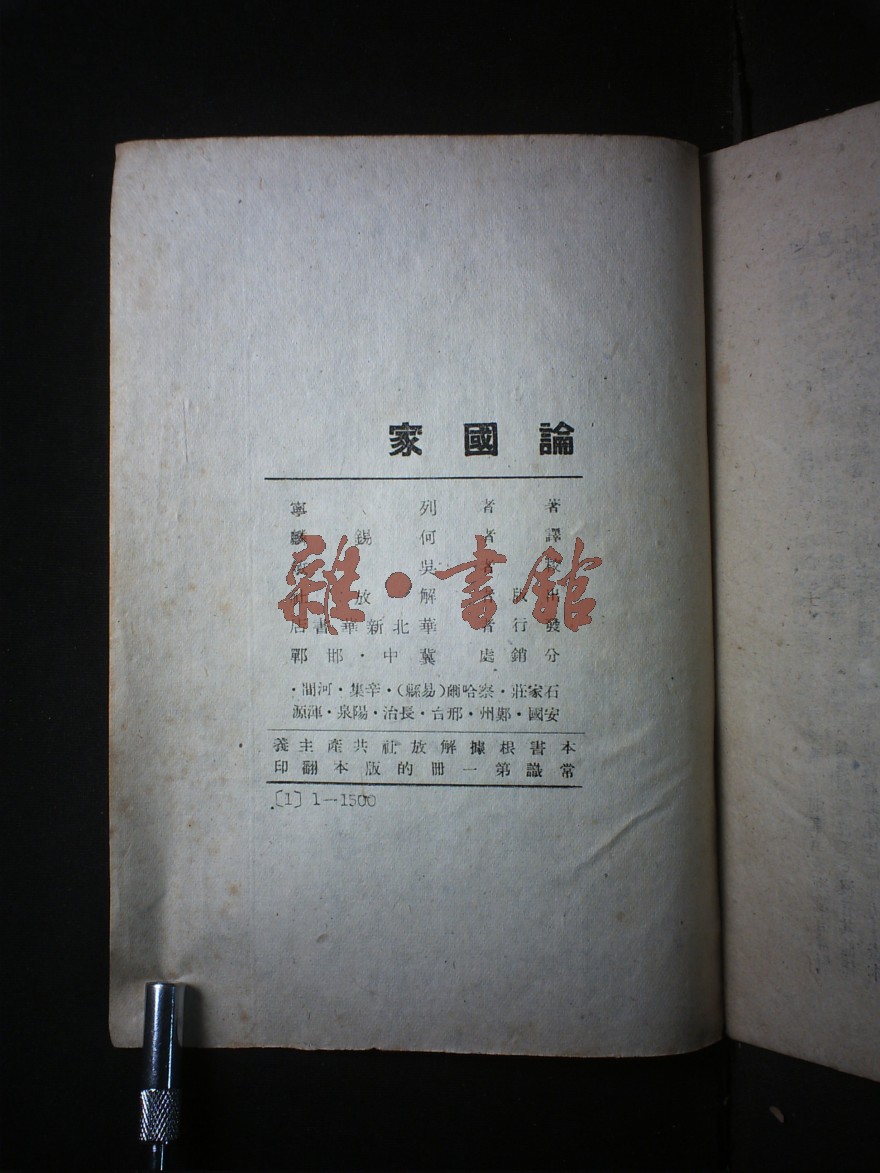 論國家
著者 列寧
譯者 何錫麟
吳
出版 解放社
發行者 華北新華書店
分銷處 冀中·邯鄲
石家莊·察哈爾(易縣)·辛集·河間·
安國·鄭州·邢台·長治·陽泉·渾源
本書根據解放社共產主義
常識第一冊的版本翻印
〔1〕1—1500
雜·書館